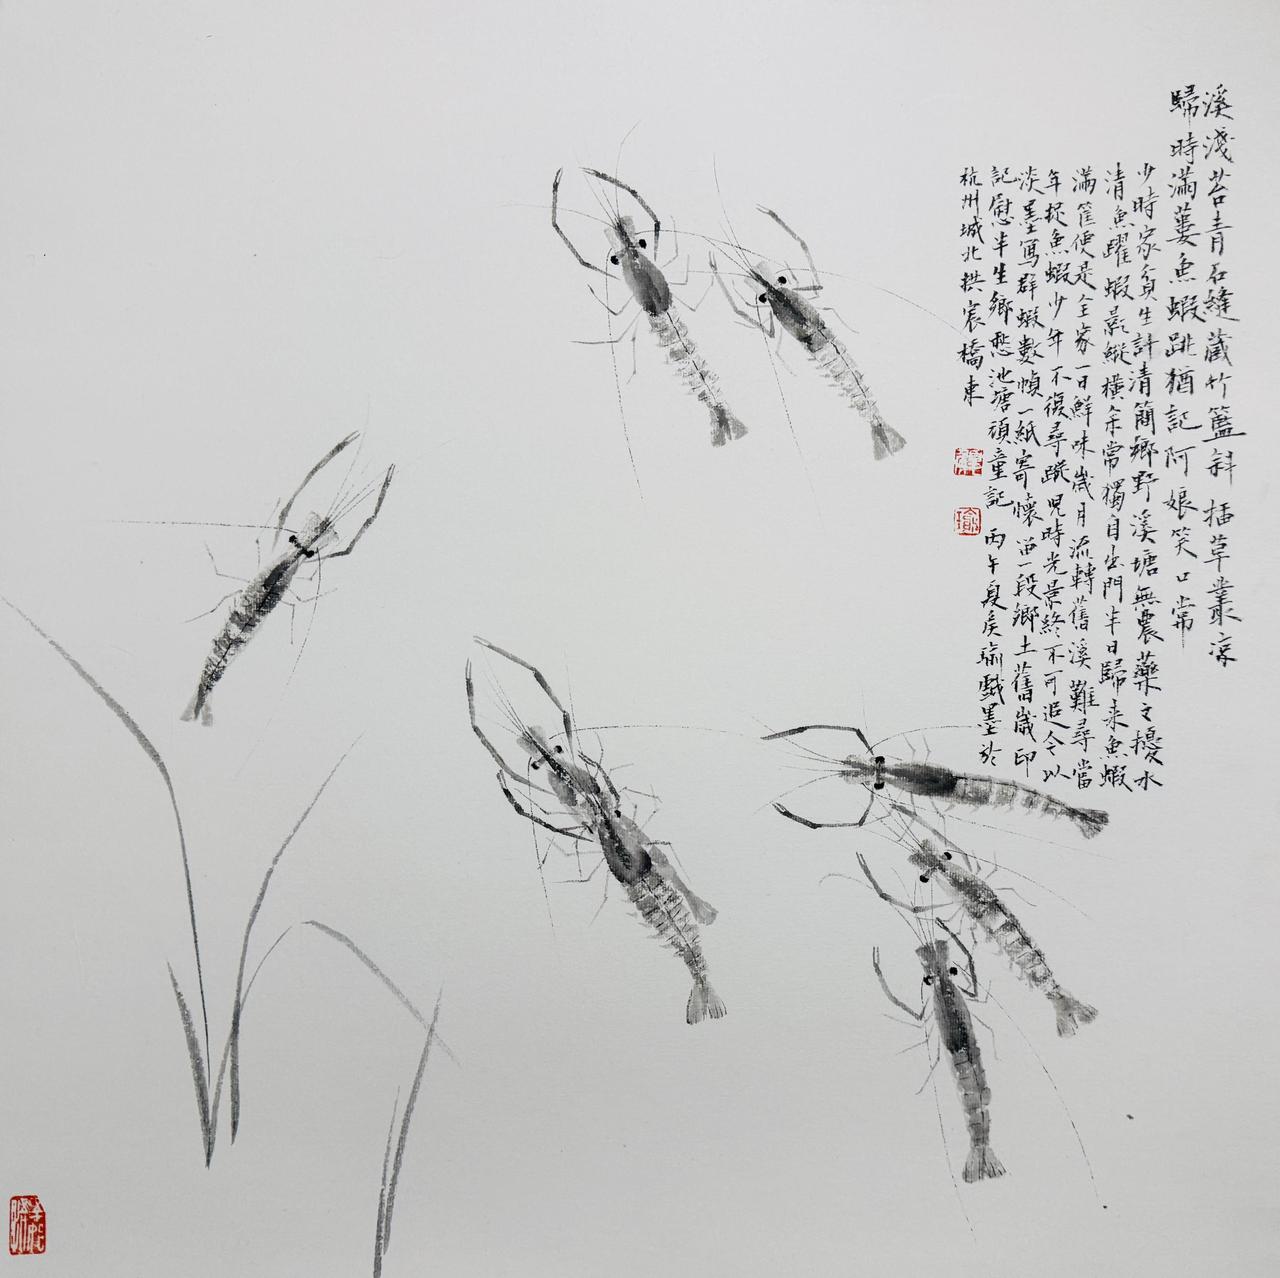 溪淺苔青石縫藏竹籃斜插草叢涼
歸時滿蔞魚蝦跳猶記阿娘笑口常
少時家貧生計清簡鄉野溪塘無農藥之擾水
清魚躍蝦影縱橫余常獨自出門半日歸来魚蝦
滿筐便是全家一日鮮味歲月流轉舊溪難尋當
年捉魚蝦少年不復尋蹤兒時光景終不可追今以
淡墨寫群蝦數幀一紙寄懷留一段鄉土舊歲印
記慰半生鄉愁池塘頑童記 丙午夏矦瑜戲墨於
杭州城北拱宸橋東